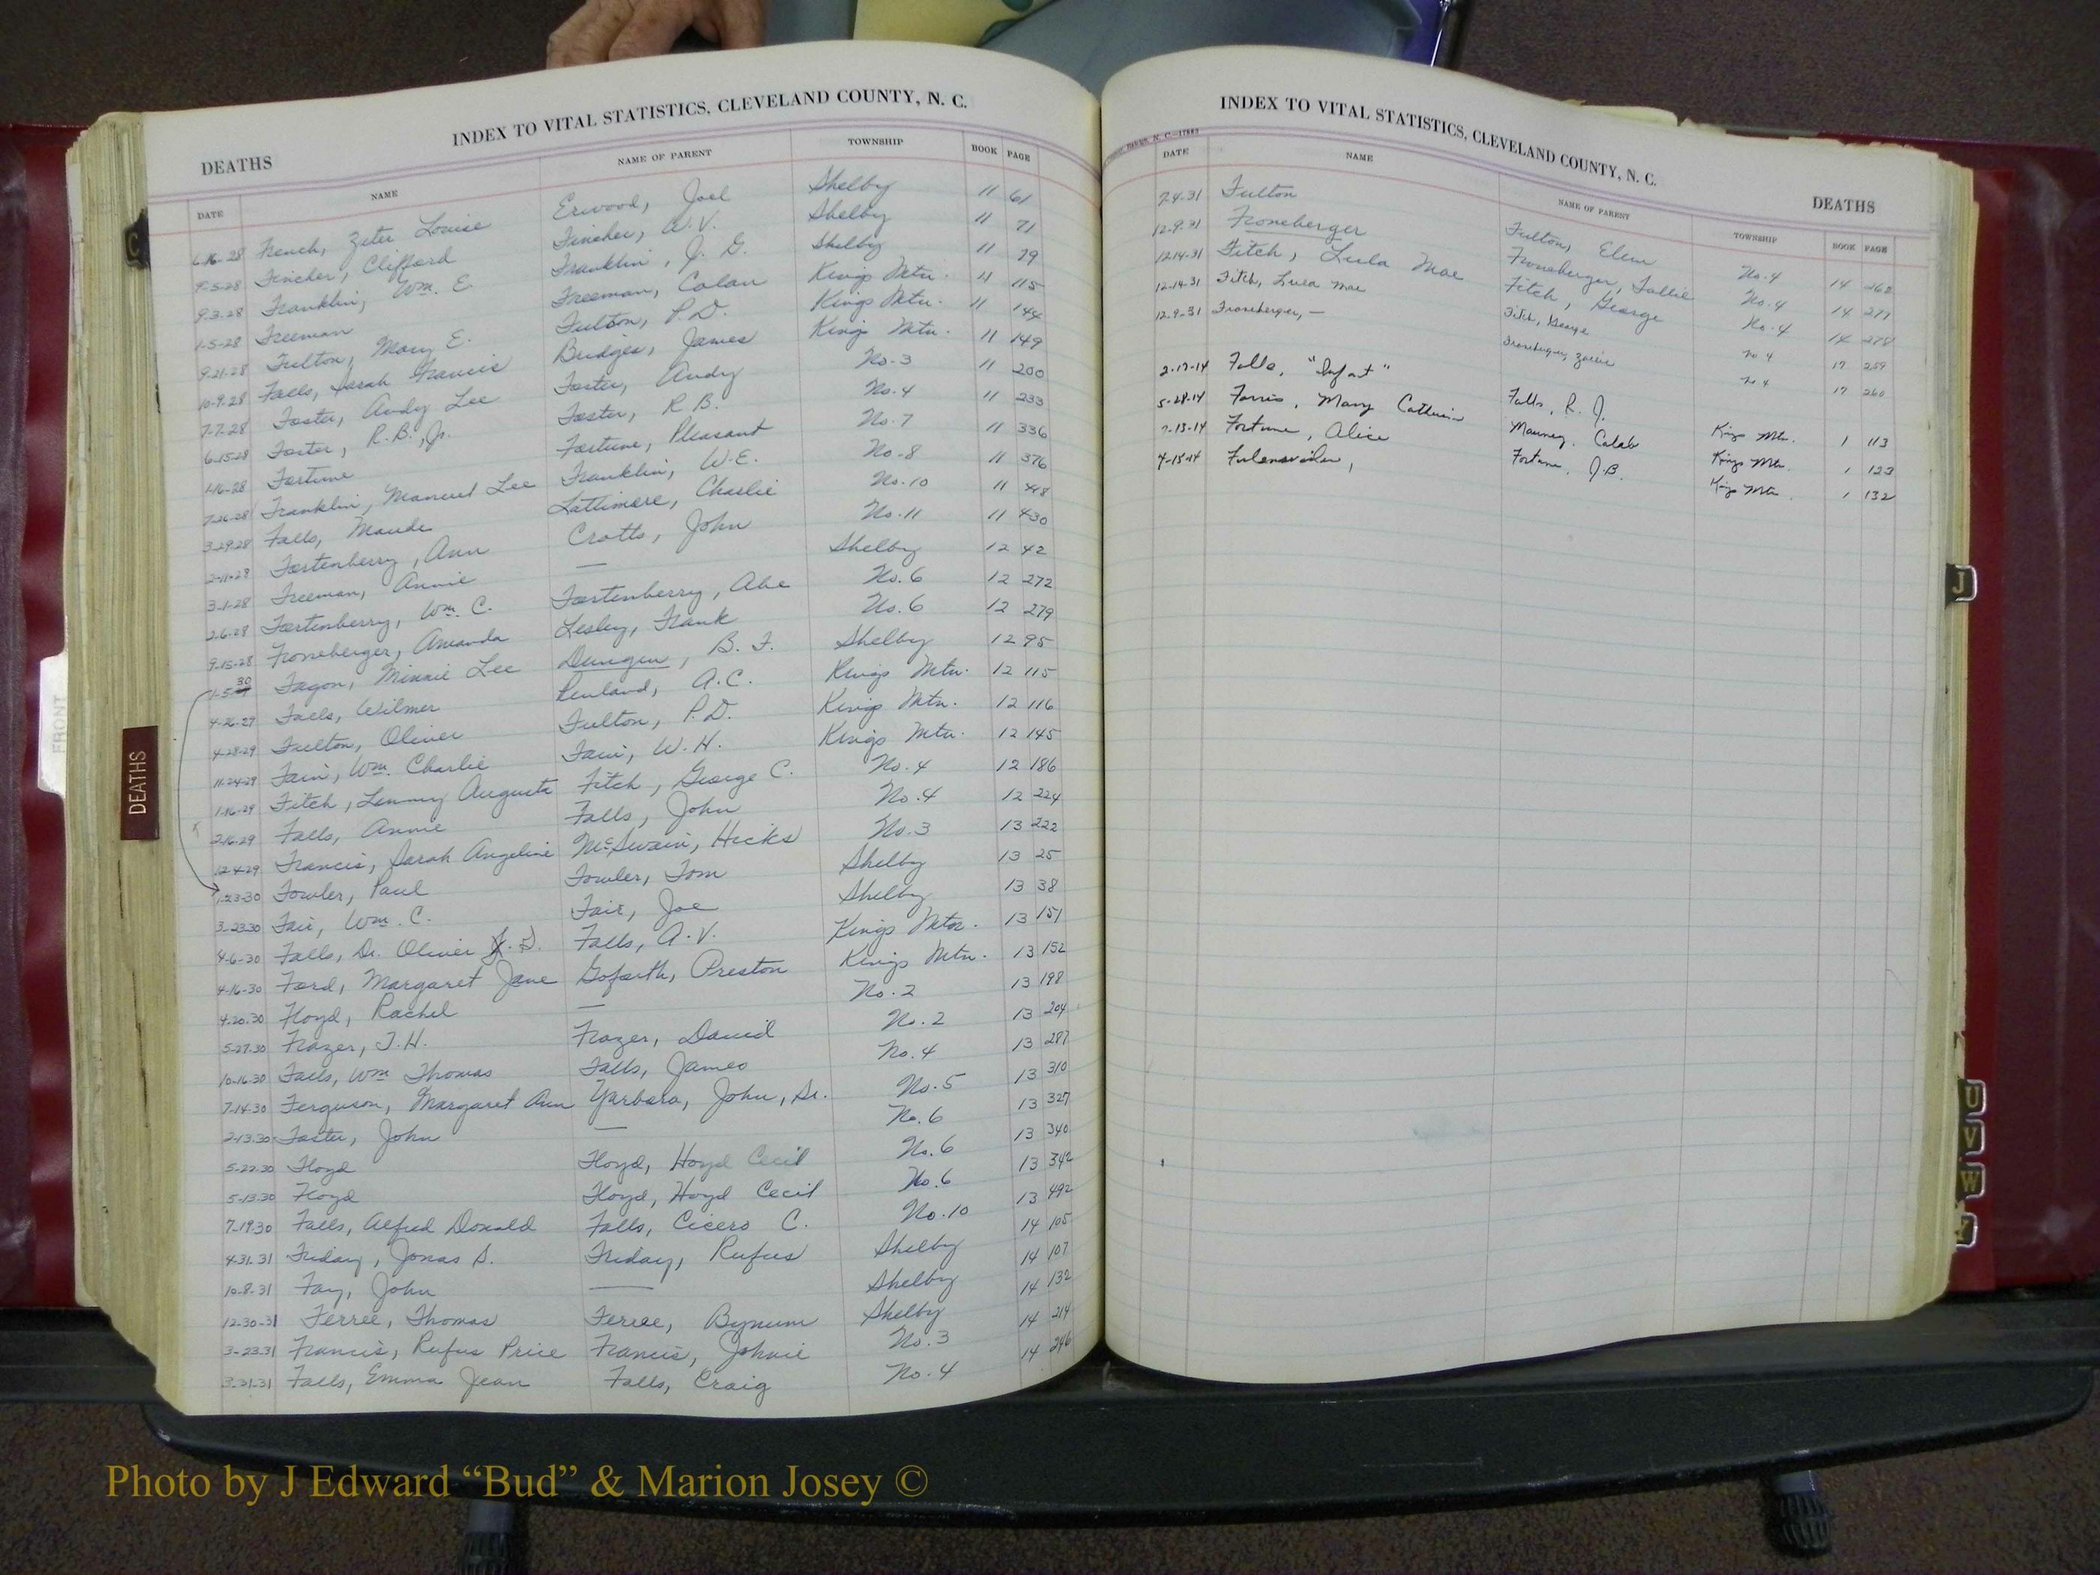 INDEX TO VITAL STATISTICS, CLEVELAND COUNTY, N. C.
DEATHS
DATE NAME NAME OF PARENT TOWNSHIP BOOK PAGE
6-16-28 French, Zeter Louise Erwood, Joel Shelby 11 61
9-5-28 Fincher, Clifford Fincher, W. V. Shelby 11 71
9-3-28 Franklin, Wm. E. Franklin, J. G. Shelby 11 79
1-5-28 Freeman Freeman, Colan Kings Mtn. 11 115
9-21-28 Fulton, Mary E. Fulton, P. D. Kings Mtn. 11 144
10-9-28 Falls, Sarah Francis Bridges, James Kings Mtn. 11 149
7-7-28 Foster, Andy Lee Foster, Andy No. 3 11 200
6-15-28 Foster, R. B., Jr. Foster, R. B. No. 4 11 233
1-16-28 Fortune Fortune, Pleasant No. 7 11 336
7-26-28 Franklin, Manuel Lee Franklin, W. E. No. 8 11 376
3-29-28 Falls, Maude Lattimore, Charlie No. 10 11 448
2-11-28 Fortenberry, Ann Crotts, John No. 11 11 430
3-1-28 Freeman, Annie — Shelby 12 42
2-6-28 Fortenberry, Wm. C. Fortenberry, Abe No. 6 12 272
9-15-28 Froneberger, Amanda Lesley, Frank No. 6 12 279
1-5-30 Fagon, Minnie Lee Dungen, B. F. Shelby 12 95
4-26-29 Falls, Wilmer Penland, A. C. Kings Mtn. 12 115
4-28-29 Fulton, Oliver Fulton, P. D. Kings Mtn. 12 116
11-24-29 Fain, Wm. Charlie Fain, W. H. Kings Mtn. 12 145
1-16-29 Fitch, Lemmy Augusta Fitch, George C. No. 4 12 186
2-16-29 Falls, Annie Falls, John No. 4 12 224
12-4-29 Francis, Sarah Angeline McSwain, Hicks No. 3 13 222
1-23-30 Fowler, Paul Fowler, Tom Shelby 13 25
3-23-30 Fair, Wm. C. Fair, Joe Shelby 13 38
4-6-30 Falls, Dr. Oliver F. Falls, A. V. Kings Mtn. 13 151
4-16-30 Ford, Margaret Jane Goforth, Preston Kings Mtn. 13 152
4-20-30 Floyd, Rachel — No. 2 13 198
5-27-30 Frazer, J. H. Frazer, David No. 2 13 204
10-16-30 Falls, Wm Thomas Falls, James No. 4 13 287
7-14-30 Ferguson, Margaret Ann Yarboro, John, Sr. No. 5 13 310
2-13-30 Foster, John — No. 6 13 327
5-22-30 Floyd Floyd, Hoyd Cecil No. 6 13 340
5-13-30 Floyd Floyd, Hoyd Cecil No. 6 13 342
7-19-30 Falls, Alfred Donald Falls, Cicero C. No. 10 13 492
4-31-31 Friday, Jonas S. Friday, Rufus Shelby 14 105
10-8-31 Fay, John — Shelby 14 107
12-30-31 Ferree, Thomas Ferree, Bynum Shelby 14 132
3-23-31 Francis, Rufus Price Francis, Johnie No. 3 14 214
3-31-31 Falls, Emma Jean Falls, Craig No. 4 14 246
INDEX TO VITAL STATISTICS, CLEVELAND COUNTY, N. C.
DEATHS
DATE NAME NAME OF PARENT TOWNSHIP BOOK PAGE
7-4-31 Fulton Fulton, Elem No. 4 14 262
12-9-31 Froneberger Froneberger, Zollie No. 4 14 277
12-14-31 Fitch, Lula Mae Fitch, George No. 4 14 278
12-14-31 Fitch, Lula Mae Fitch, George No 4 17 259
12-9-31 Froneberger, — Froneberger, Zollie No 4 17 260
2-17-14 Falls, "Infant" Falls, R. J. Kings Mtn. 1 113
5-28-14 Farris, Mary Catherine Mauney, Caleb Kings Mtn. 1 123
7-13-14 Fortune, Alice Fortune, J. B. Kings Mtn. 1 132
4-15-14
C
FRONT
DEATHS
J
U
V
W
Photo by J Edward “Bud” & Marion Josey ©